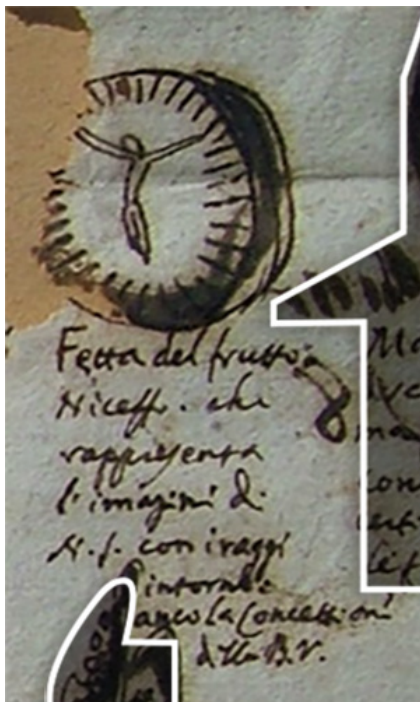 Fetta del frutto
Niceffo. che
rappresenta
l'imagini di
N. S. con i raggi
intorno.
anco la Concettioni
della B.V.